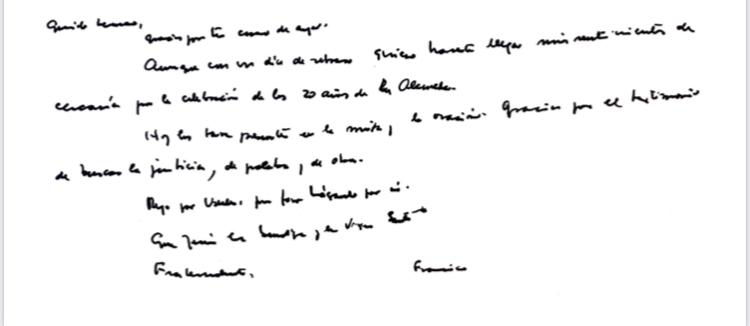 Querido hermano,
gracias por tu correo de ayer.
Aunque con un día de retraso quiero hacerte llegar mis sentimientos de
cercanía por la celebración de los 20 años de la Alameda.
Hoy los tuve presente en la misa, y la oración. Gracias por el testimonio
de buscar la justicia, de palabra, y de obra.
Rezo por Ustedes, por favor háganlo por mí.
Que Jesús los bendiga y la Virgen
Fraternalmente, Francisco